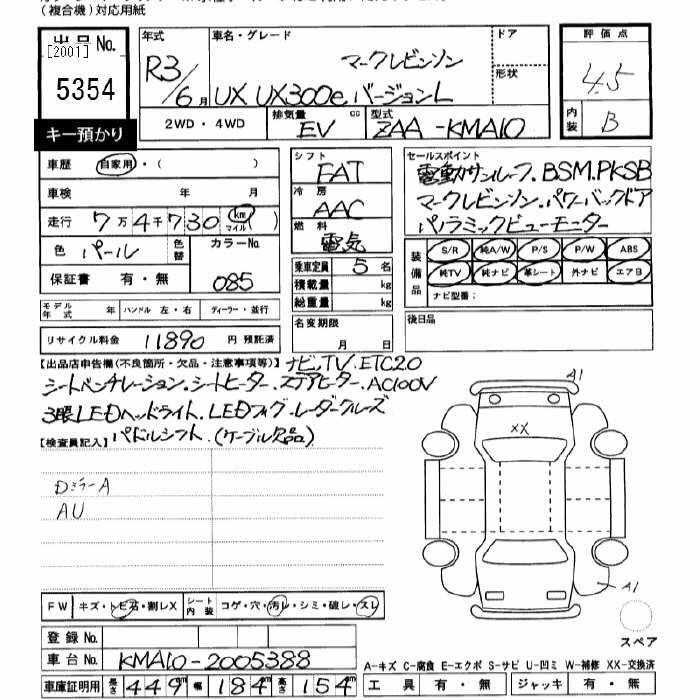 (複合機)対応用紙
出品No.
[2001]
5354
キー預かり
年式 車名・グレード ドア
R3/6月 マークレビンソン 形状
UX UX300e バージョンL
2WD・4WD 排気量 EV cc 型式 ZAA-KMA10
評価点
4.5
内装 B
車歴 自家用・( )
車検 年 月
走行 7万4千730 km マイル
色 パール 色替 カラーNo. 085
保証書 有・無
シフト FAT
冷房 AAC
燃料 電気
乗車定員 5名
積載量 kg
総重量 kg
名変期限 月 日
セールスポイント
電動サンルーフ.BSM.PKSB
マークレビンソン.パワーバックドア
パノラミックビューモニター
装備品 S/R 純A/W P/S P/W ABS
純TV 純ナビ 革シート 外ナビ エアB
ナビ型番:
後日品
モデル年式 年 ハンドル 左・右 ディーラー・並行
リサイクル料金 11890 円 預託済
【出品店申告欄(不良箇所・欠品・注意事項等)】 ナビ.TV.ETC2.0
シートベンチレーション.シートヒーター.ステアヒーター.AC100V
3眼LEDヘッドライト.LEDフォグ.レーダークルーズ
【検査員記入】 パドルシフト.(ケーブル欠品)
DミラーA
AU
A1
XX
A1
スペア
FW キズ・トビ石・割レX シート内装 コゲ・穴・汚レ・シミ・破レ・スレ
登録No.
車台No. KMA10-2005388
車庫証明用 長さ 449cm 幅 184cm 高さ 154cm
A-キズ C-腐食 E-エクボ S-サビ U-凹ミ W-補修 XX-交換済
工具 有・無 ジャッキ 有・無